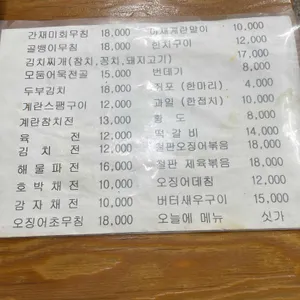 간재미회무침 18,000
골뱅이무침 18,000
김치찌개(참치,꽁치,돼지고기)
모둠어묵전골 15,000
두부김치 18,000
계란스팸구이 12,000
계란참치전 13,000
육 전 12,000
김 치 전 12,000
해 물 파 전 16,000
호 박 채 전 10,000
감 자 채 전 10,000
오징어초무침 18,000
야채계란말이 10,000
한치구이 12,000
17,000
번데기 8,000
쥐포 (한마리) 4,000
과일 (한접시) 10,000
황 도 8,000
떡 갈 비 14,000
철판오징어볶음 18,000
철판 제육볶음 18,000
오징어데침 12,000
버터새우구이 15,000
오늘에 메뉴 싯가